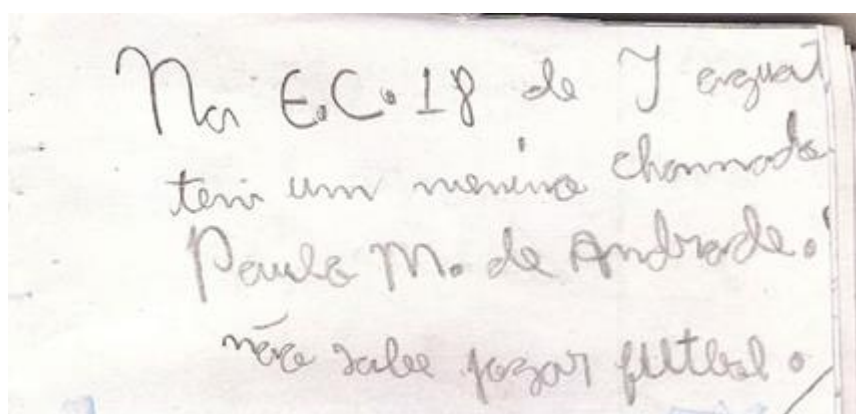 Na E.C. 18 de Taguat
tem um menino chamado
Paulo M. de Andrade.
não sabe jogar futbol.